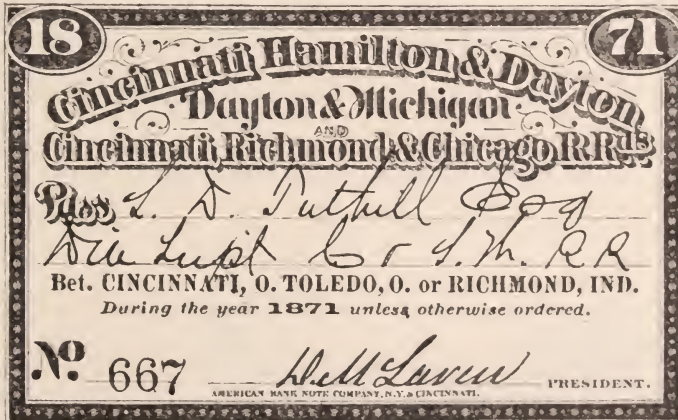 18 71
Cincinnati Hamilton & Dayton,
Dayton & Michigan
AND
Cincinnati, Richmond & Chicago R.Rds
Pass L. D. Tuthill Esq
Div Supt L S M. RR
Bet. CINCINNATI, O. TOLEDO, O. or RICHMOND, IND.
During the year 1871 unless otherwise ordered.
No. 667 D. McLaren PRESIDENT.
AMERICAN BANK NOTE COMPANY, N.Y. & CINCINNATI.